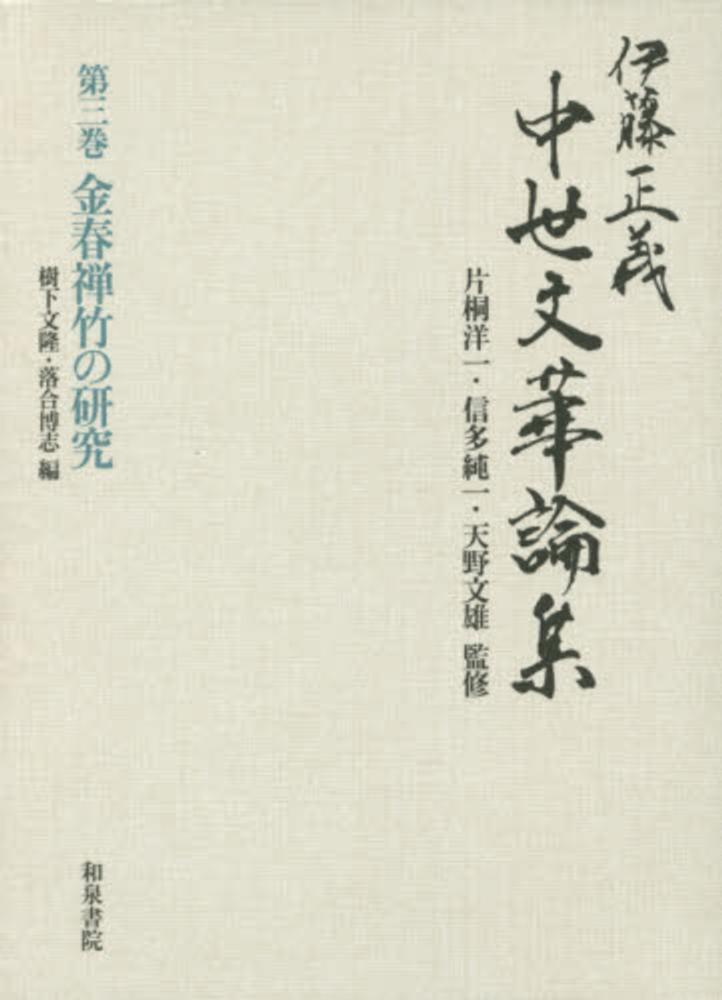 伊藤正義
中世文華論集
片桐洋一・信多純一・天野文雄 監修
第三巻 金春禅竹の研究
樹下文隆・落合博志 編
和泉書院